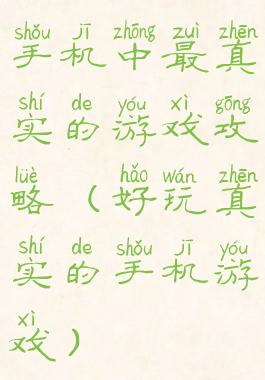 shǒu jī zhōng zuì zhēn
手机中最真
shí de yóu xì gōng
实的游戏攻
lüè hǎo wán zhēn
略（好玩真
shí de shǒu jī yóu
实的手机游
xì
戏）